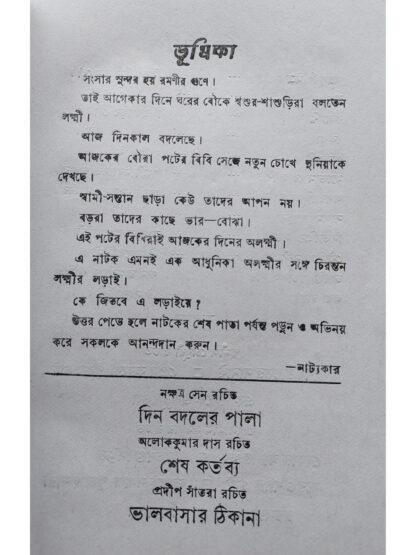 ভূমিকা
সংসার সুন্দর হয় রমণীর গুণে।
তাই আগেকার দিনে ঘরের বৌকে শ্বশুর-শাশুড়িরা বলতেন
লক্ষ্মী।
আজ দিনকাল বদলেছে।
আজকের বৌরা পটের বিবি সেজে নতুন চোখে দুনিয়াকে
দেখছে।
স্বামী-সন্তান ছাড়া কেউ তাদের আপন নয়।
বড়রা তাদের কাছে ভার—বোঝা।
এই পটের বিবিরাই আজকের দিনের অলক্ষ্মী।
এ নাটক এমনই এক আধুনিকা অলক্ষ্মীর সঙ্গে চিরন্তন
লক্ষ্মীর লড়াই।
কে জিতবে এ লড়াইয়ে?
উত্তর পেতে হলে নাটকের শেষ পাতা পর্যন্ত পড়ুন ও অভিনয়
করে সকলকে আনন্দদান করুন।
—নাট্যকার
নক্ষত্র সেন রচিত
দিন বদলের পালা
অলোককুমার দাস রচিত
শেষ কর্তব্য
প্রদীপ সাঁতরা রচিত
ভালবাসার ঠিকানা